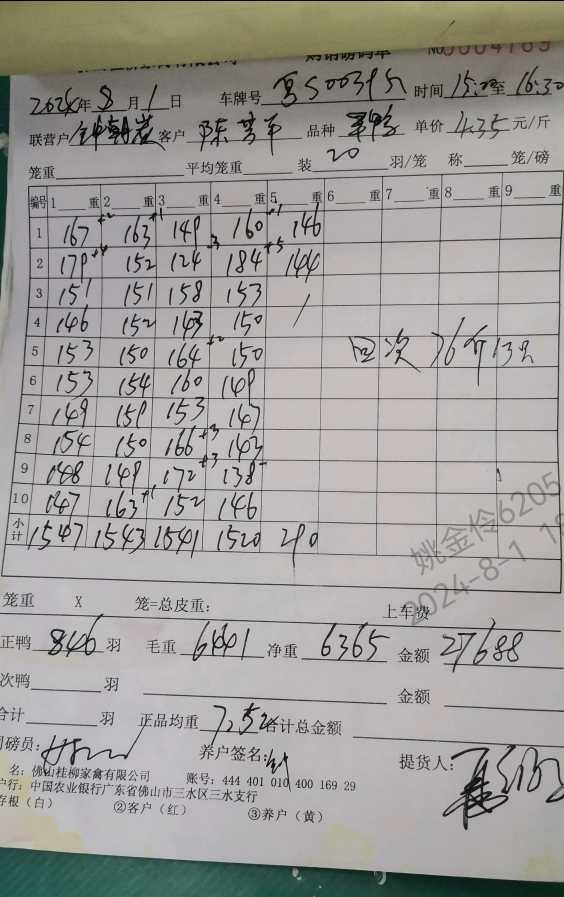 购销磅码单 No 0004769
2024年 8月 1日 车牌号 时间 15:20至 16:30
联营户 客户 陈 品种 单价 4.35 元/斤
笼重 平均笼重 装 20 羽/笼 称 笼/磅
编号 1 重 2 重 3 重 4 重 5 重 6 重 7 重 8 重 9 重
1 167 +2 163 +1 149 160 +1 146
2 179 +4 152 124 -3 184 +5 144
3 151 151 158 153 /
4 146 152 143 150
5 153 150 164 +2 150 回次 76斤13只
6 153 154 160 149
7 149 159 153 147
8 154 150 166 +3 143
9 148 149 172 +3 138
10 147 163 +1 152 146
小计 1547 1543 1541 1520 290
笼重 X 笼=总皮重: 上车费
正鸭 846 羽 毛重 6441 净重 6365 金额 27688
次鸭 羽 金额
合计 羽 正品均重 7.52 合计总金额
司磅员: 养户签名: 提货人:
名: 佛山桂柳家禽有限公司 账号: 444 401 010 400 169 29
户行: 中国农业银行广东省佛山市三水区三水支行
存根(白) ②客户(红) ③养户(黄)
姚金伶6205
2024-8-1